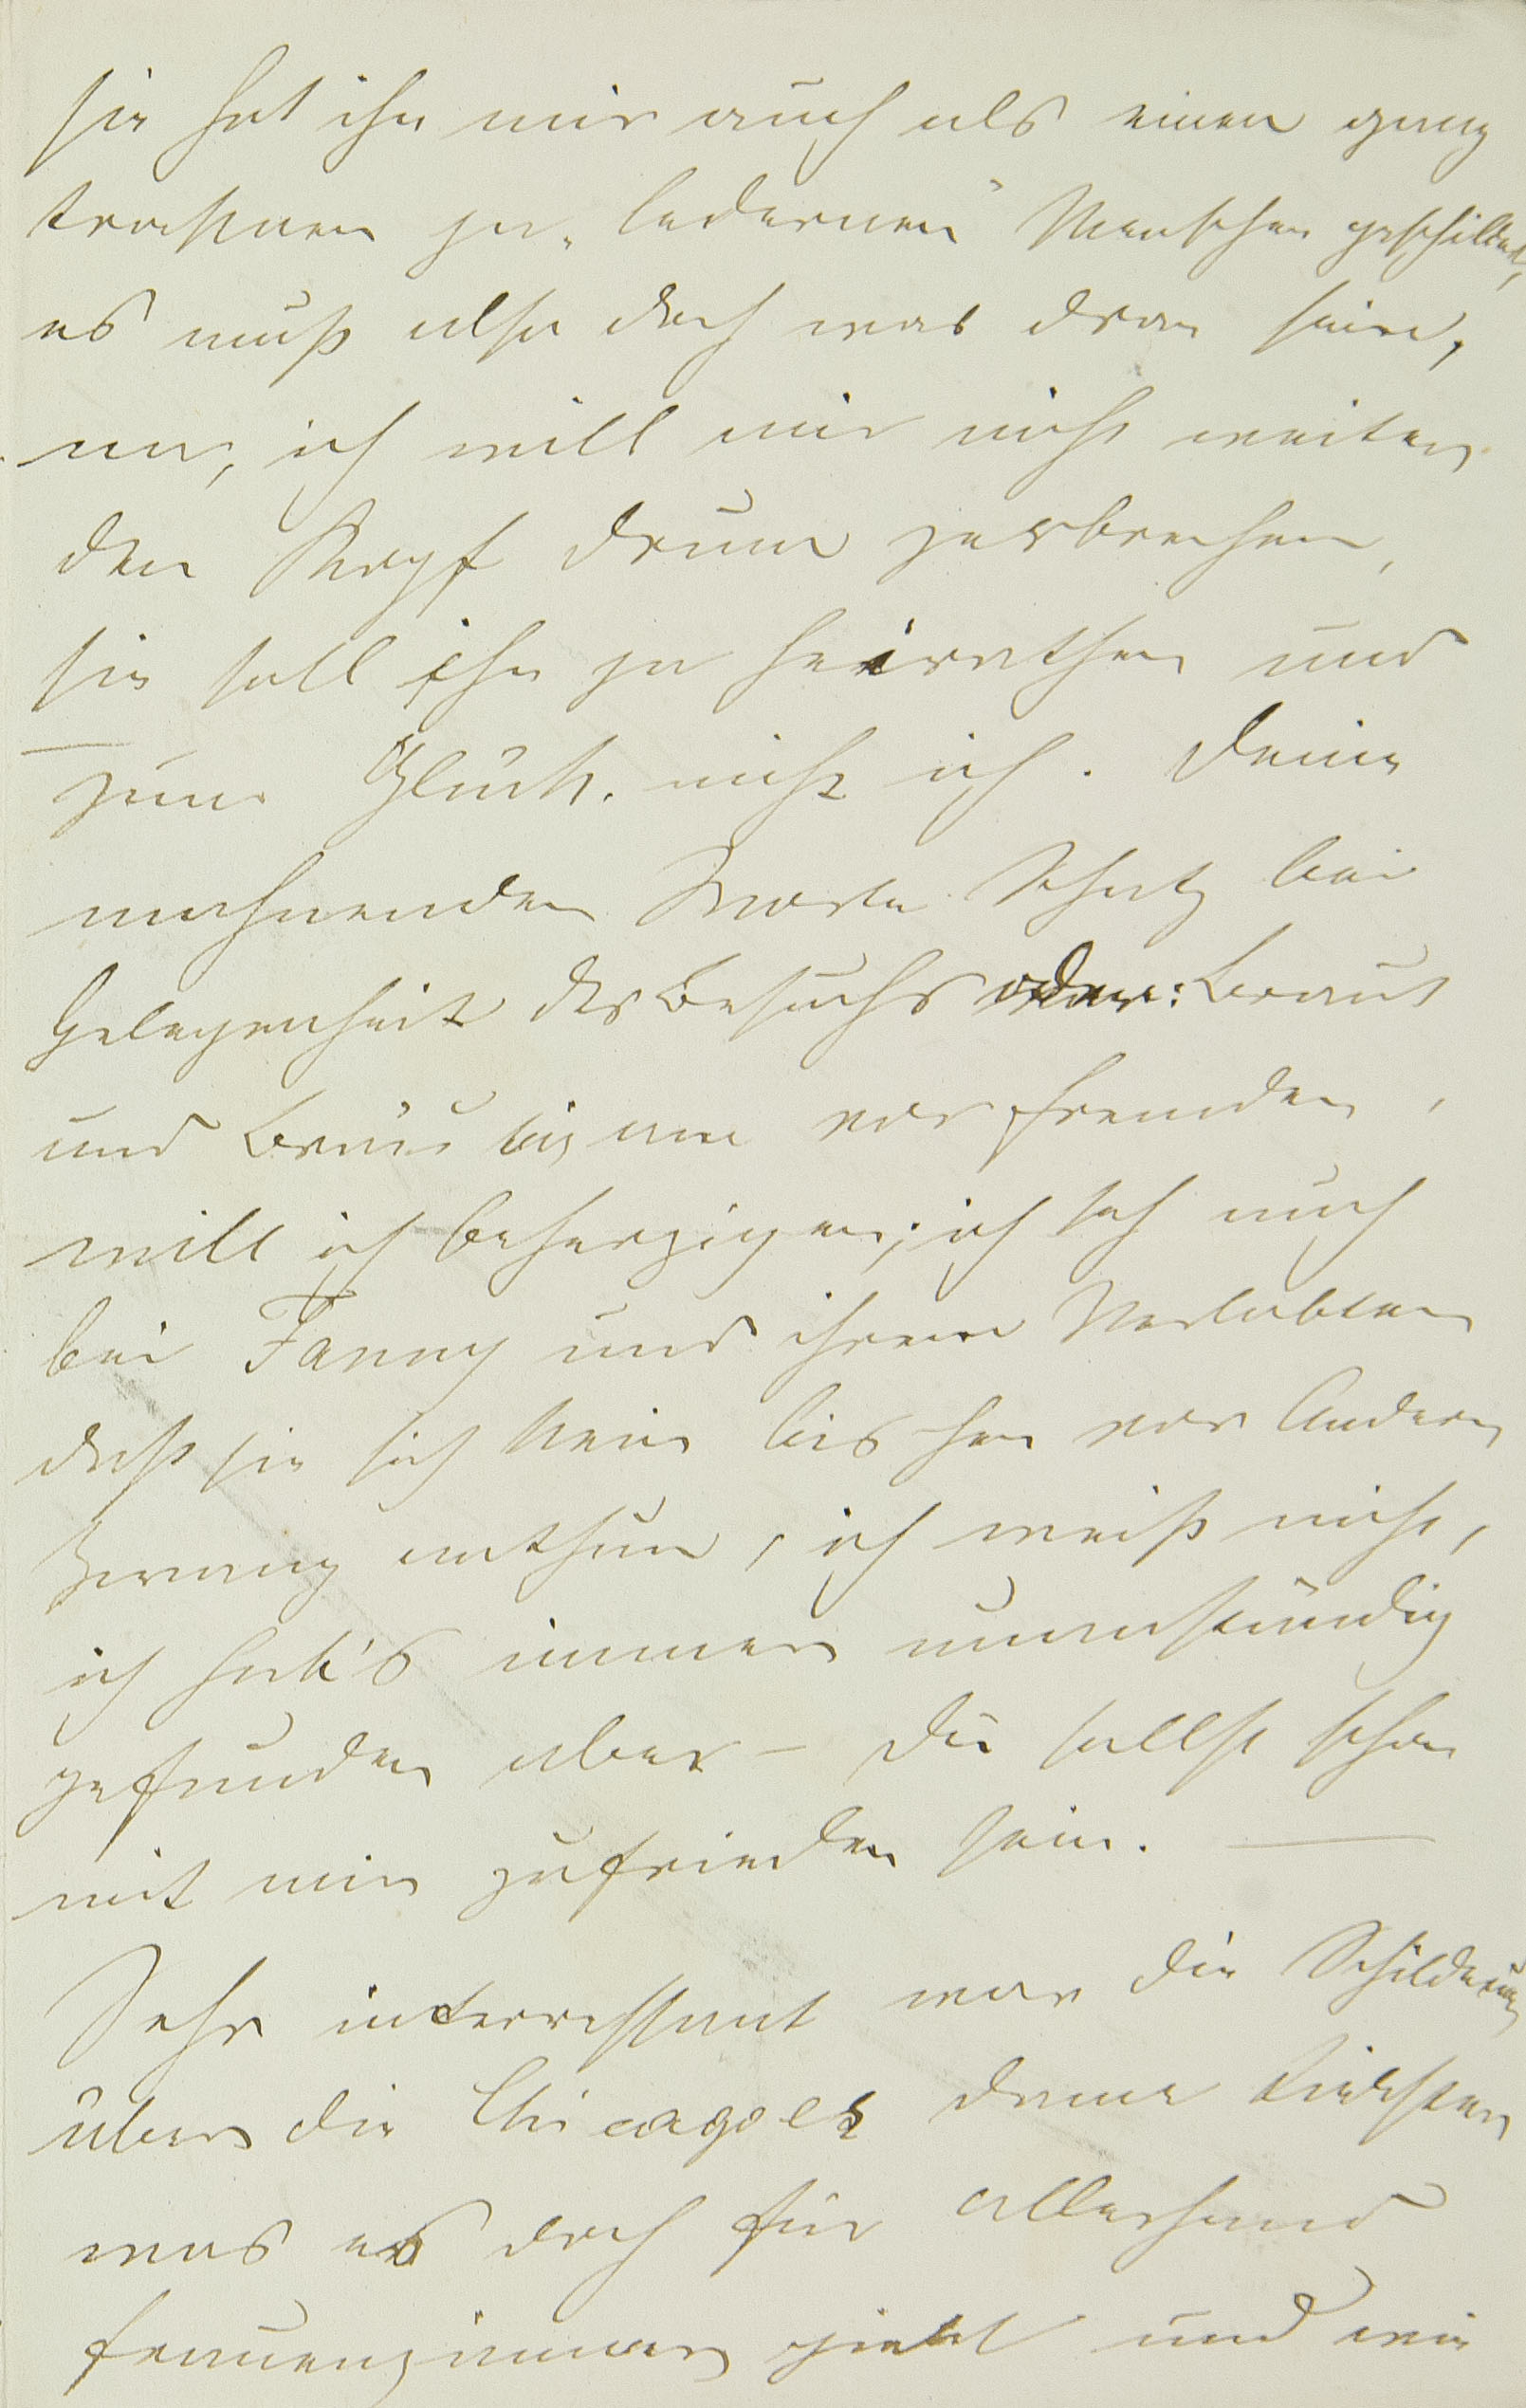 sie hat ihn mir auch als einen ganz
trocknen ja „ledernen" Menschen geschildert,
es muß also doch was dran sein,
nun, ich will mir nicht weiter
den Kopf drum zerbrechen,
sie soll ihn ja heirathen und
zum Glück nicht ich. Deine
mahnenden Worte Schatz bei
Gelegenheit des Besuchs oder: Braut
und Bräutigam vor Fremden,
will ich beherzigen; ich sah auch
bei Fanny und ihrem Verlobten
daß sie sich kein bischen vor Andern
Zwang anthun, ich weiß nicht,
ich hab's immer unanständig
gefunden aber – Du sollst schon
mit mir zufrieden sein. —
Sehr interressant war die Schilderung
über die Chicagoer
was es doch für allerhand
Frauenzimmer giebt und wie